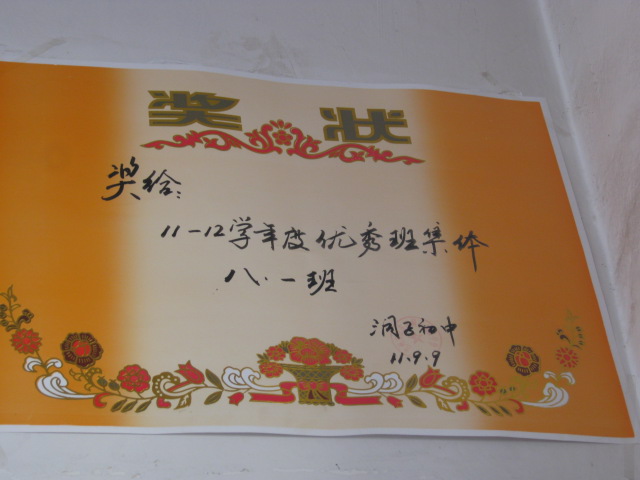 奖状
奖给:
11-12学年度优秀班集体
八·一班
初中
11.9.9